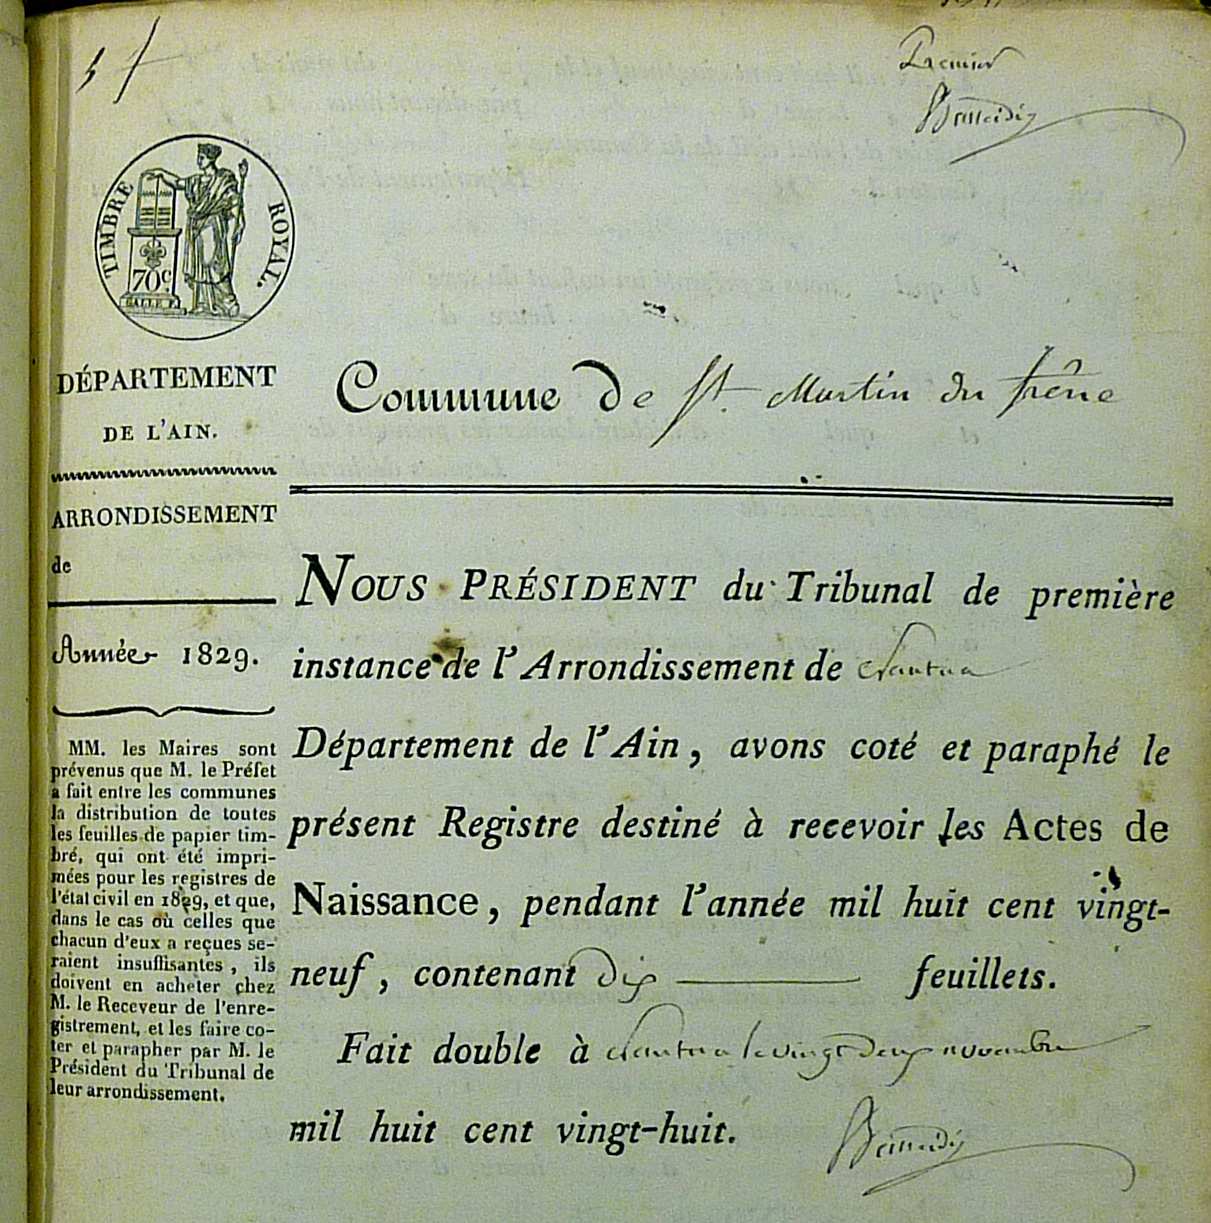 Premier
TIMBRE ROYAL.
70 c
DÉPARTEMENT
DE L'AIN.
ARRONDISSEMENT
de
Année 1829.
MM. les Maires sont
prévenus que M. le Préfet
a fait entre les communes
la distribution de toutes
les feuilles de papier tim-
bré, qui ont été impri-
mées pour les registres de
l'état civil en 1829, et que,
dans le cas où celles que
chacun d'eux a reçues se-
raient insuffisantes, ils
doivent en acheter chez
M. le Receveur de l'enre-
gistrement, et les faire co-
ter et parapher par M. le
Président du Tribunal de
leur arrondissement.
Commune De St. Martin du frêne
NOUS PRÉSIDENT du Tribunal de première
instance de l'Arrondissement de Nantua
Département de l'Ain, avons coté et paraphé le
présent Registre destiné à recevoir les Actes de
Naissance, pendant l'année mil huit cent vingt-
neuf, contenant dix feuillets.
Fait double à Nantua le vingt deux novembre
mil huit cent vingt-huit.